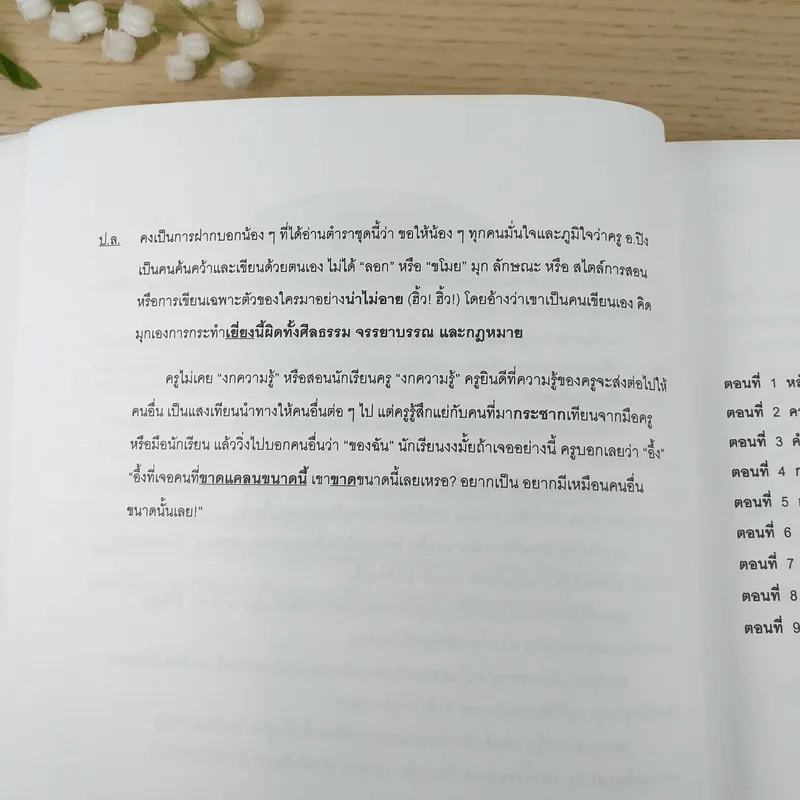 ป.ล. คงเป็นการฝากบอกน้อง ๆ ที่ได้อ่านตำราชุดนี้ว่า ขอให้น้อง ๆ ทุกคนมั่นใจและภูมิใจว่าครู อ.ปิง
เป็นคนค้นคว้าและเขียนด้วยตนเอง ไม่ได้ “ลอก” หรือ “ขโมย” มุก ลักษณะ หรือ สไตล์การสอน
หรือการเขียนเฉพาะตัวของใครมาอย่างน่าไม่อาย (ฮิ้ว! ฮิ้ว!) โดยอ้างว่าเขาเป็นคนเขียนเอง คิด
มุกเองการกระทำเยี่ยงนี้ผิดทั้งศีลธรรม จรรยาบรรณ และกฎหมาย
ครูไม่เคย “งกความรู้” หรือสอนนักเรียนครู “งกความรู้” ครูยินดีที่ความรู้ของครูจะส่งต่อไปให้
คนอื่น เป็นแสงเทียนนำทางให้คนอื่นต่อ ๆ ไป แต่ครูรู้สึกแย่กับคนที่มากระชากเทียนจากมือครู
หรือมือนักเรียน แล้ววิ่งไปบอกคนอื่นว่า “ของฉัน” นักเรียนงงมั้ยถ้าเจออย่างนี้ ครูบอกเลยว่า “อึ้ง”
“อึ้งที่เจอคนที่ขาดแคลนขนาดนี้ เขาขาดขนาดนี้เลยเหรอ? อยากเป็น อยากมีเหมือนคนอื่น
ขนาดนั้นเลย!”
ตอนที่ 1
ตอนที่ 2
ตอนที่ 3
ตอนที่ 4
ตอนที่ 5
ตอนที่ 6
ตอนที่ 7
ตอนที่ 8
ตอนที่ 9